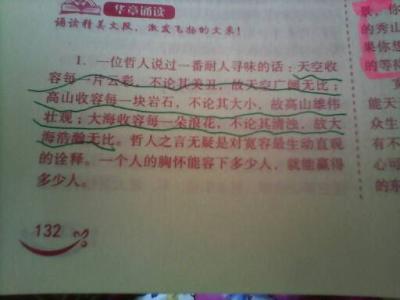 华章诵读
诵读精美文段，激发飞扬的文采！
1. 一位哲人说过一番耐人寻味的话：天空收
容每一片云彩，不论其美丑，故天空广阔无比；
高山收容每一块岩石，不论其大小，故高山雄伟
壮观；大海收容每一朵浪花，不论其清浊，故大
海浩瀚无比。哲人之言无疑是对宽容最生动直观
的诠释。一个人的胸怀能容下多少人，就能赢得
多少人。
132
景，你
的秀山
果你想
的等待
宽
能天
众生
有不
心可
东